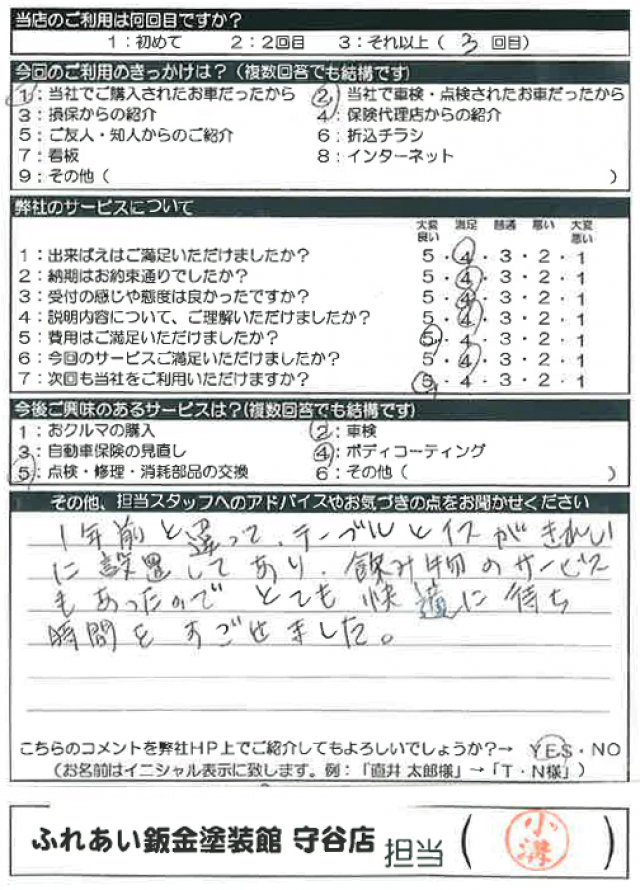 当店のご利用は何回目ですか?
1:初めて 2:2回目 3:それ以上( 3 回目)
今回のご利用のきっかけは?(複数回答でも結構です)
1:当社でご購入されたお車だったから 2:当社で車検・点検されたお車だったから
3:損保からの紹介 4:保険代理店からの紹介
5:ご友人・知人からのご紹介 6:折込チラシ
7:看板 8:インターネット
9:その他( )
弊社のサービスについて
大変良い 満足 普通 悪い 大変悪い
1:出来ばえはご満足いただけましたか? 5・4・3・2・1
2:納期はお約束通りでしたか? 5・4・3・2・1
3:受付の感じや態度は良かったですか? 5・4・3・2・1
4:説明内容について、ご理解いただけましたか? 5・4・3・2・1
5:費用はご満足いただけましたか? 5・4・3・2・1
6:今回のサービスご満足いただけましたか? 5・4・3・2・1
7:次回も当社をご利用いただけますか? 5・4・3・2・1
今後ご興味のあるサービスは?(複数回答でも結構です)
1:おクルマの購入 2:車検
3:自動車保険の見直し 4:ボディコーティング
5:点検・修理・消耗部品の交換 6:その他( )
その他、担当スタッフへのアドバイスやお気づきの点をお聞かせください
1年前と違って、テーブルとイスがきれい
に設置してあり、飲み物のサービス
もあったのでとても快適に待ち
時間をすごせました。
こちらのコメントを弊社HP上でご紹介してもよろしいでしょうか?→ YES・NO
(お名前はイニシャル表示に致します。例:「直井 太郎様」→「T・N様」)
ふれあい鈑金塗装館 守谷店 担当( 小溝 )